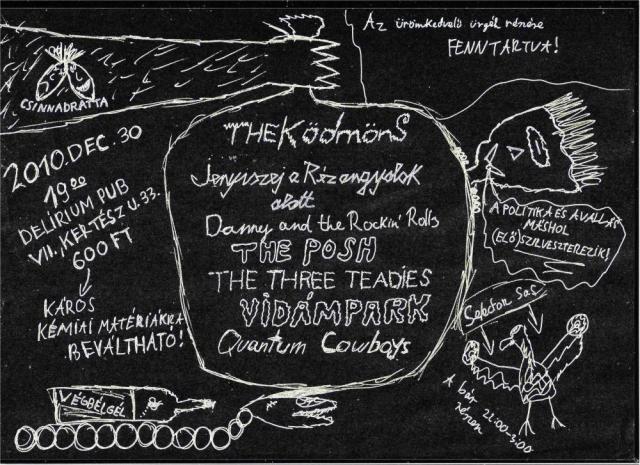 Az ürömkedvelő ürgék részére
FENNTARTVA!
CSINNADRATTA
2010. DEC. 30
19 00
DELÍRIUM PUB
VII. KERTÉSZ U. 33.
600 FT
KÁROS
KÉMIAI MATÉRIÁKRA
BEVÁLTHATÓ!
THE KödmönS
Jenyiszej a Rizsangyalok
alatt
Danny and the Rockin' Rolls
THE POSH
THE THREE TEADIES
VIDÁMPARK
Quantum Cowboys
A POLITIKA ÉS A VALLÁS
MÁSHOL
(ELŐ)SZILVESZTEREZIK!
Selector Sas
A bár
részen
21:00-3:00
VÉGBÉLGÉL